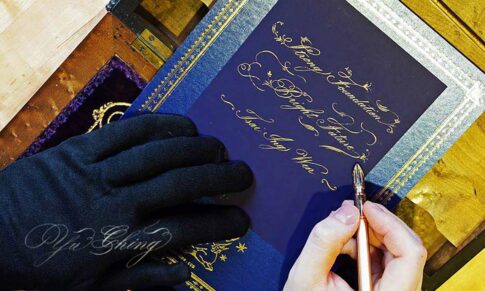 Strong Foundation
Bright Future
Tsai Ing Wen
Yu Ching